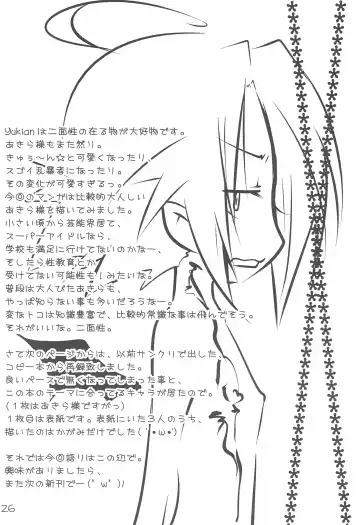 Yukianは二面性の在る物が大好物です。
あきら様もまた然り。
きゅぅ～ん☆と可愛くなったり、
スゴイ乱暴者になったり。
その変化が可愛すぎるっ。
今回のマンガは比較的大人しい
あきら様を描いてみました。
小さい頃から芸能界居て、
スーパーアイドルなら、
学校も満足に行けてないのかなー、
そしたら性教育とか
受けてない可能性も！みたいな。
普段は大人びたあきらも、
やっぱ知らない事も多いだろうなー。
変なトコは知識豊富で、比較的常識な事は飛んでそう。
それがいいな。二面性。
さて次のページからは、以前サンクリで出した、
コピー本から再録致しました。
良いペースで黒くなってしまった事と、
この本のテーマに合ってるキャラが居たので。
(1枚はあきら様ですがっ)
1枚目は表紙です。表紙にいた3人のうち、
描いたのはかがみだけでした(´･ω･`)
それでは今回語りはこの辺で。
興味がありましたら、
また次の新刊でー(`･ω･´)ﾉ
26